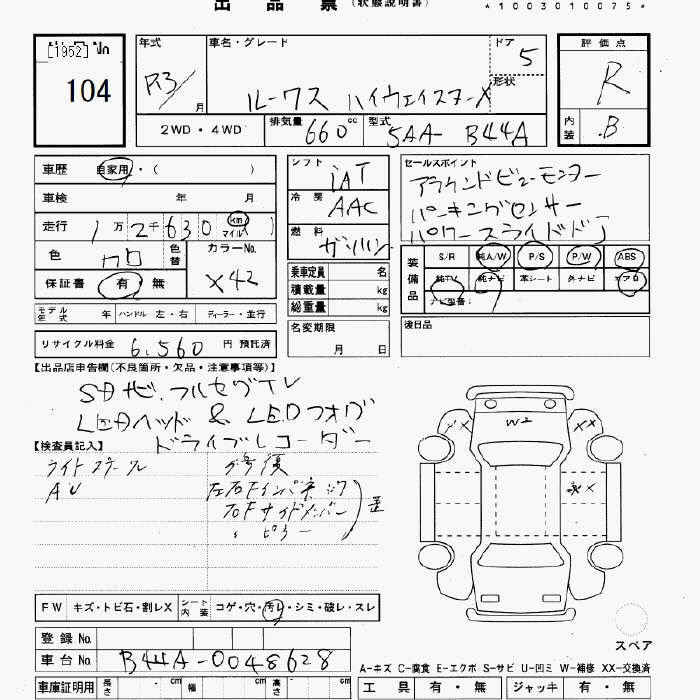 出品票 (状態説明書)
*1003010075*
[1952] No
104
年式 R3/ 月
車名・グレード
ルークス ハイウェイスターX
ドア 5
形状
2WD・4WD
排気量 660 cc
型式 5AA- B44A
評価点 R
内装 B
車歴 自家用・( )
車検 年 月
走行 1万2千630 km マイル
色 クロ 色替
カラーNo. X42
保証書 有 無
モデル年式 年 ハンドル 左・右 ディーラー・並行
リサイクル料金 6,560 円 預託済
シフト IAT
冷房 AAC
燃料 ガソリン
乗車定員 名
積載量 kg
総重量 kg
名変期限 月 日
セールスポイント
アラウンドビューモニター
パーキングセンサー
パワースライドド
装備品
S/R 純A/W P/S P/W ABS
純TV 純ナビ 革シート 外ナビ エアB
ナビ型番:
後日品
【出品店申告欄(不良箇所・欠品・注意事項等)】
SDナビ.フルセグTV
LEDヘッド & LEDフォグ
ドライブレコーダー
【検査員記入】
ライトスクール
AU
修復
左右Fインパネ
右Fサイドメンバー
〃 ピラー
歪
W2
XX
XX
FW キズ・トビ石・割レX
シート内装 コゲ・穴・汚レ・シミ・破レ・スレ
登録No.
車台No. B44A-0048628
車庫証明用 長さ cm 幅 cm 高さ cm
スペア
A-キズ C-腐食 E-エクボ S-サビ U-凹ミ W-補修 XX-交換済
工具 有・無 ジャッキ 有・無